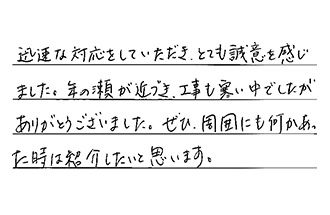 迅速な対応をしていただき、とても誠意を感じ
ました。年の瀬が近づき、工事も寒い中でしたが
ありがとうございました。ぜひ、周囲にも何かあっ
た時は紹介したいと思います。